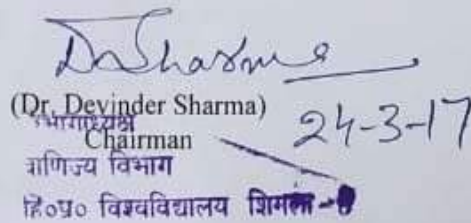 DSharma
(Dr. Devinder Sharma)
24-3-17
विभागाध्यक्ष
Chairman
वाणिज्य विभाग
हि०प्र० विश्वविद्यालय शिमला-5